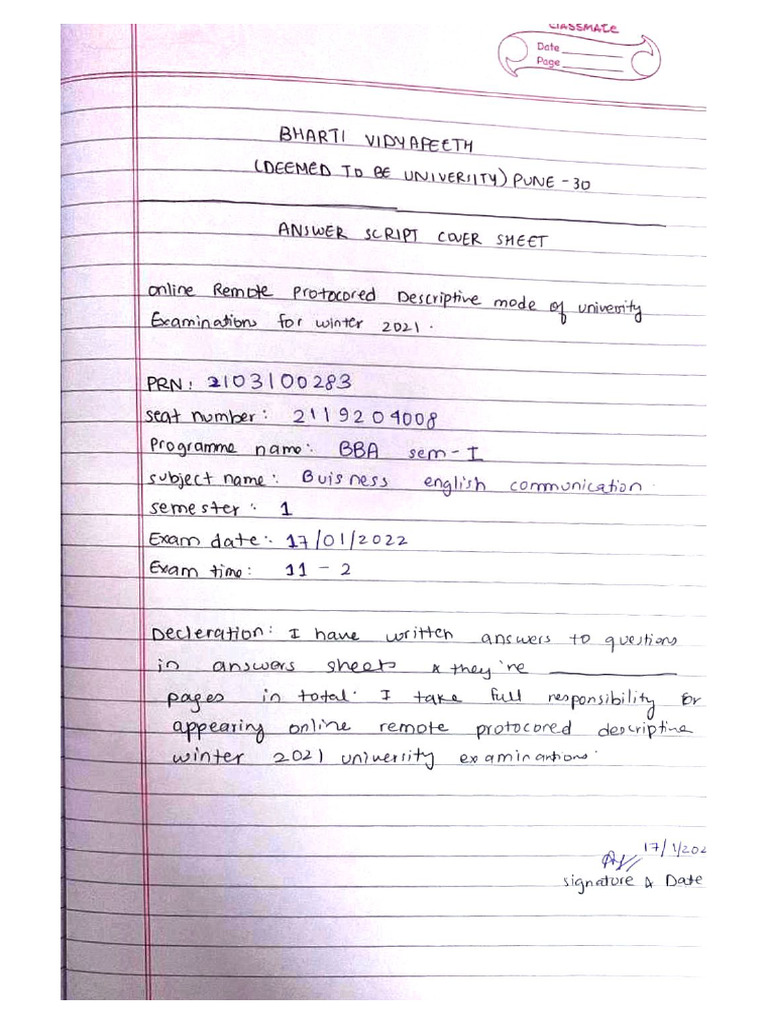 classmate
Date
Page
BHARTI VIDYAPEETH
(DEEMED TO BE UNIVERIITY) PUNE - 30
ANSWER SCRIPT COVER SHEET
online Remote Protocored Descriptive mode of university
Examinations for winter 2021.
PRN: 2103100283
seat number: 2119204008
Programme name: BBA sem - I
subject name: Buisness english communication.
semester: 1
Exam date: 17/01/2022
Exam time: 11 - 2
Decleration: I have written answers to questions
in answers sheets & they're
pages in total. I take full responsibility for
appearing online remote protocored descriptive
winter 2021 university examinantions.
17/1/202
signature & Date